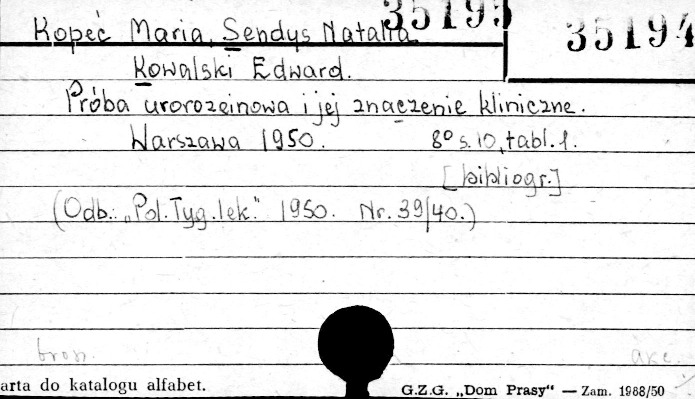 35195 35194
Kopeć Maria, Sendys Natalia
Kowalski Edward.
Próba urorozeinowa i jej znaczenie kliniczne.
Warszawa 1950. 8° s. 10, tabl. 1.
[bibliogr.]
(Odb.: „Pol. Tyg. lek." 1950. Nr. 39/40.)
brosz. akc.
arta do katalogu alfabet. G.Z.G. „Dom Prasy" — Zam. 1968/50